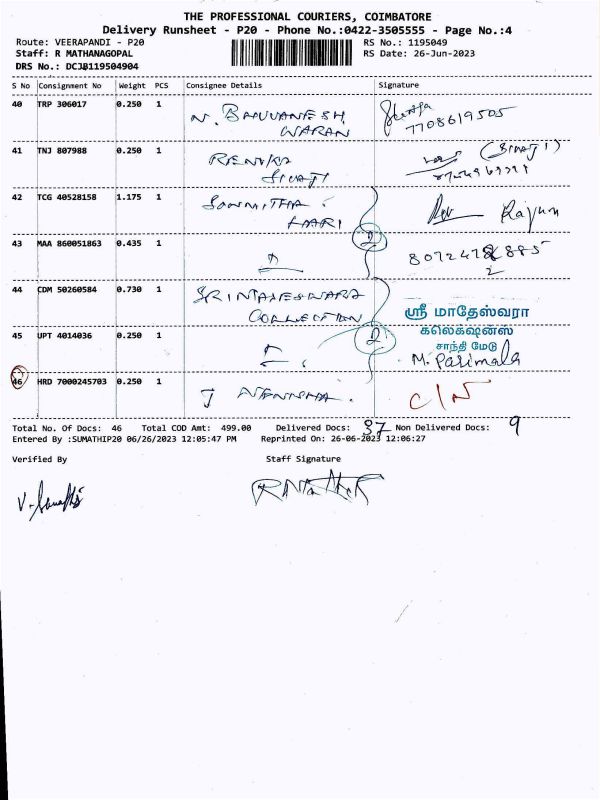 THE PROFESSIONAL COURIERS, COIMBATORE
Delivery Runsheet - P20 - Phone No.:0422-3505555 - Page No.:4
Route: VEERAPANDI - P20 RS No.: 1195049
Staff: R MATHANAGOPAL RS Date: 26-Jun-2023
DRS No.: DCJB119504904
S No Consignment No Weight PCS Consignee Details Signature
40 TRP 306017 0.250 1 N. BHUVANESH
WARAN
7708619505
41 TNJ 807988 0.250 1 RENUKA (SIVAJI)
SIVAJI
42 TCG 40528158 1.175 1 SANMITHA Rajun
HARI
2
43 MAA 860051863 0.435 1
44 CDM 50260584 0.730 1 SRI MATHESWARA
COLLECTION
ஸ்ரீ மாதேஸ்வரா
கலெக்ஷன்ஸ்
சாந்தி மேடு
45 UPT 4014036 0.250 1 2 M. Parimala
46 HRD 7000245703 0.250 1 C/N
Total No. Of Docs: 46 Total COD Amt: 499.00 Delivered Docs: 37 Non Delivered Docs: 9
Entered By :SUMATHIP20 06/26/2023 12:05:47 PM Reprinted On: 26-06-2023 12:06:27
Verified By Staff Signature